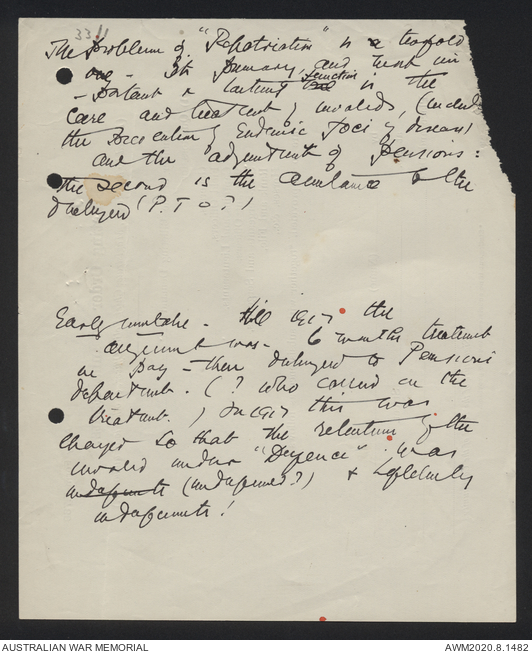 33/1
The Problem of "Repatriation" is a twofold
one - Its primary, and most im
-portant & lasting function is in the
care and treatment of invalids, (includ
the Prevention of Endemic foci of disease)
and the adjustment of Pensions:
The second is the assistance to the
discharged (P.T.O?)
Early mistake - till 1917 the
argument was - 6 months treatment
on Pay - then discharged to Pensions
department. (? who carried on the
treatment.) In 1917 this was
changed so that the retention of the
invalid under "Defence" was
indefinite (indefined?) &
indefinite!
AUSTRALIAN WAR MEMORIAL
AWM2020.8.1482